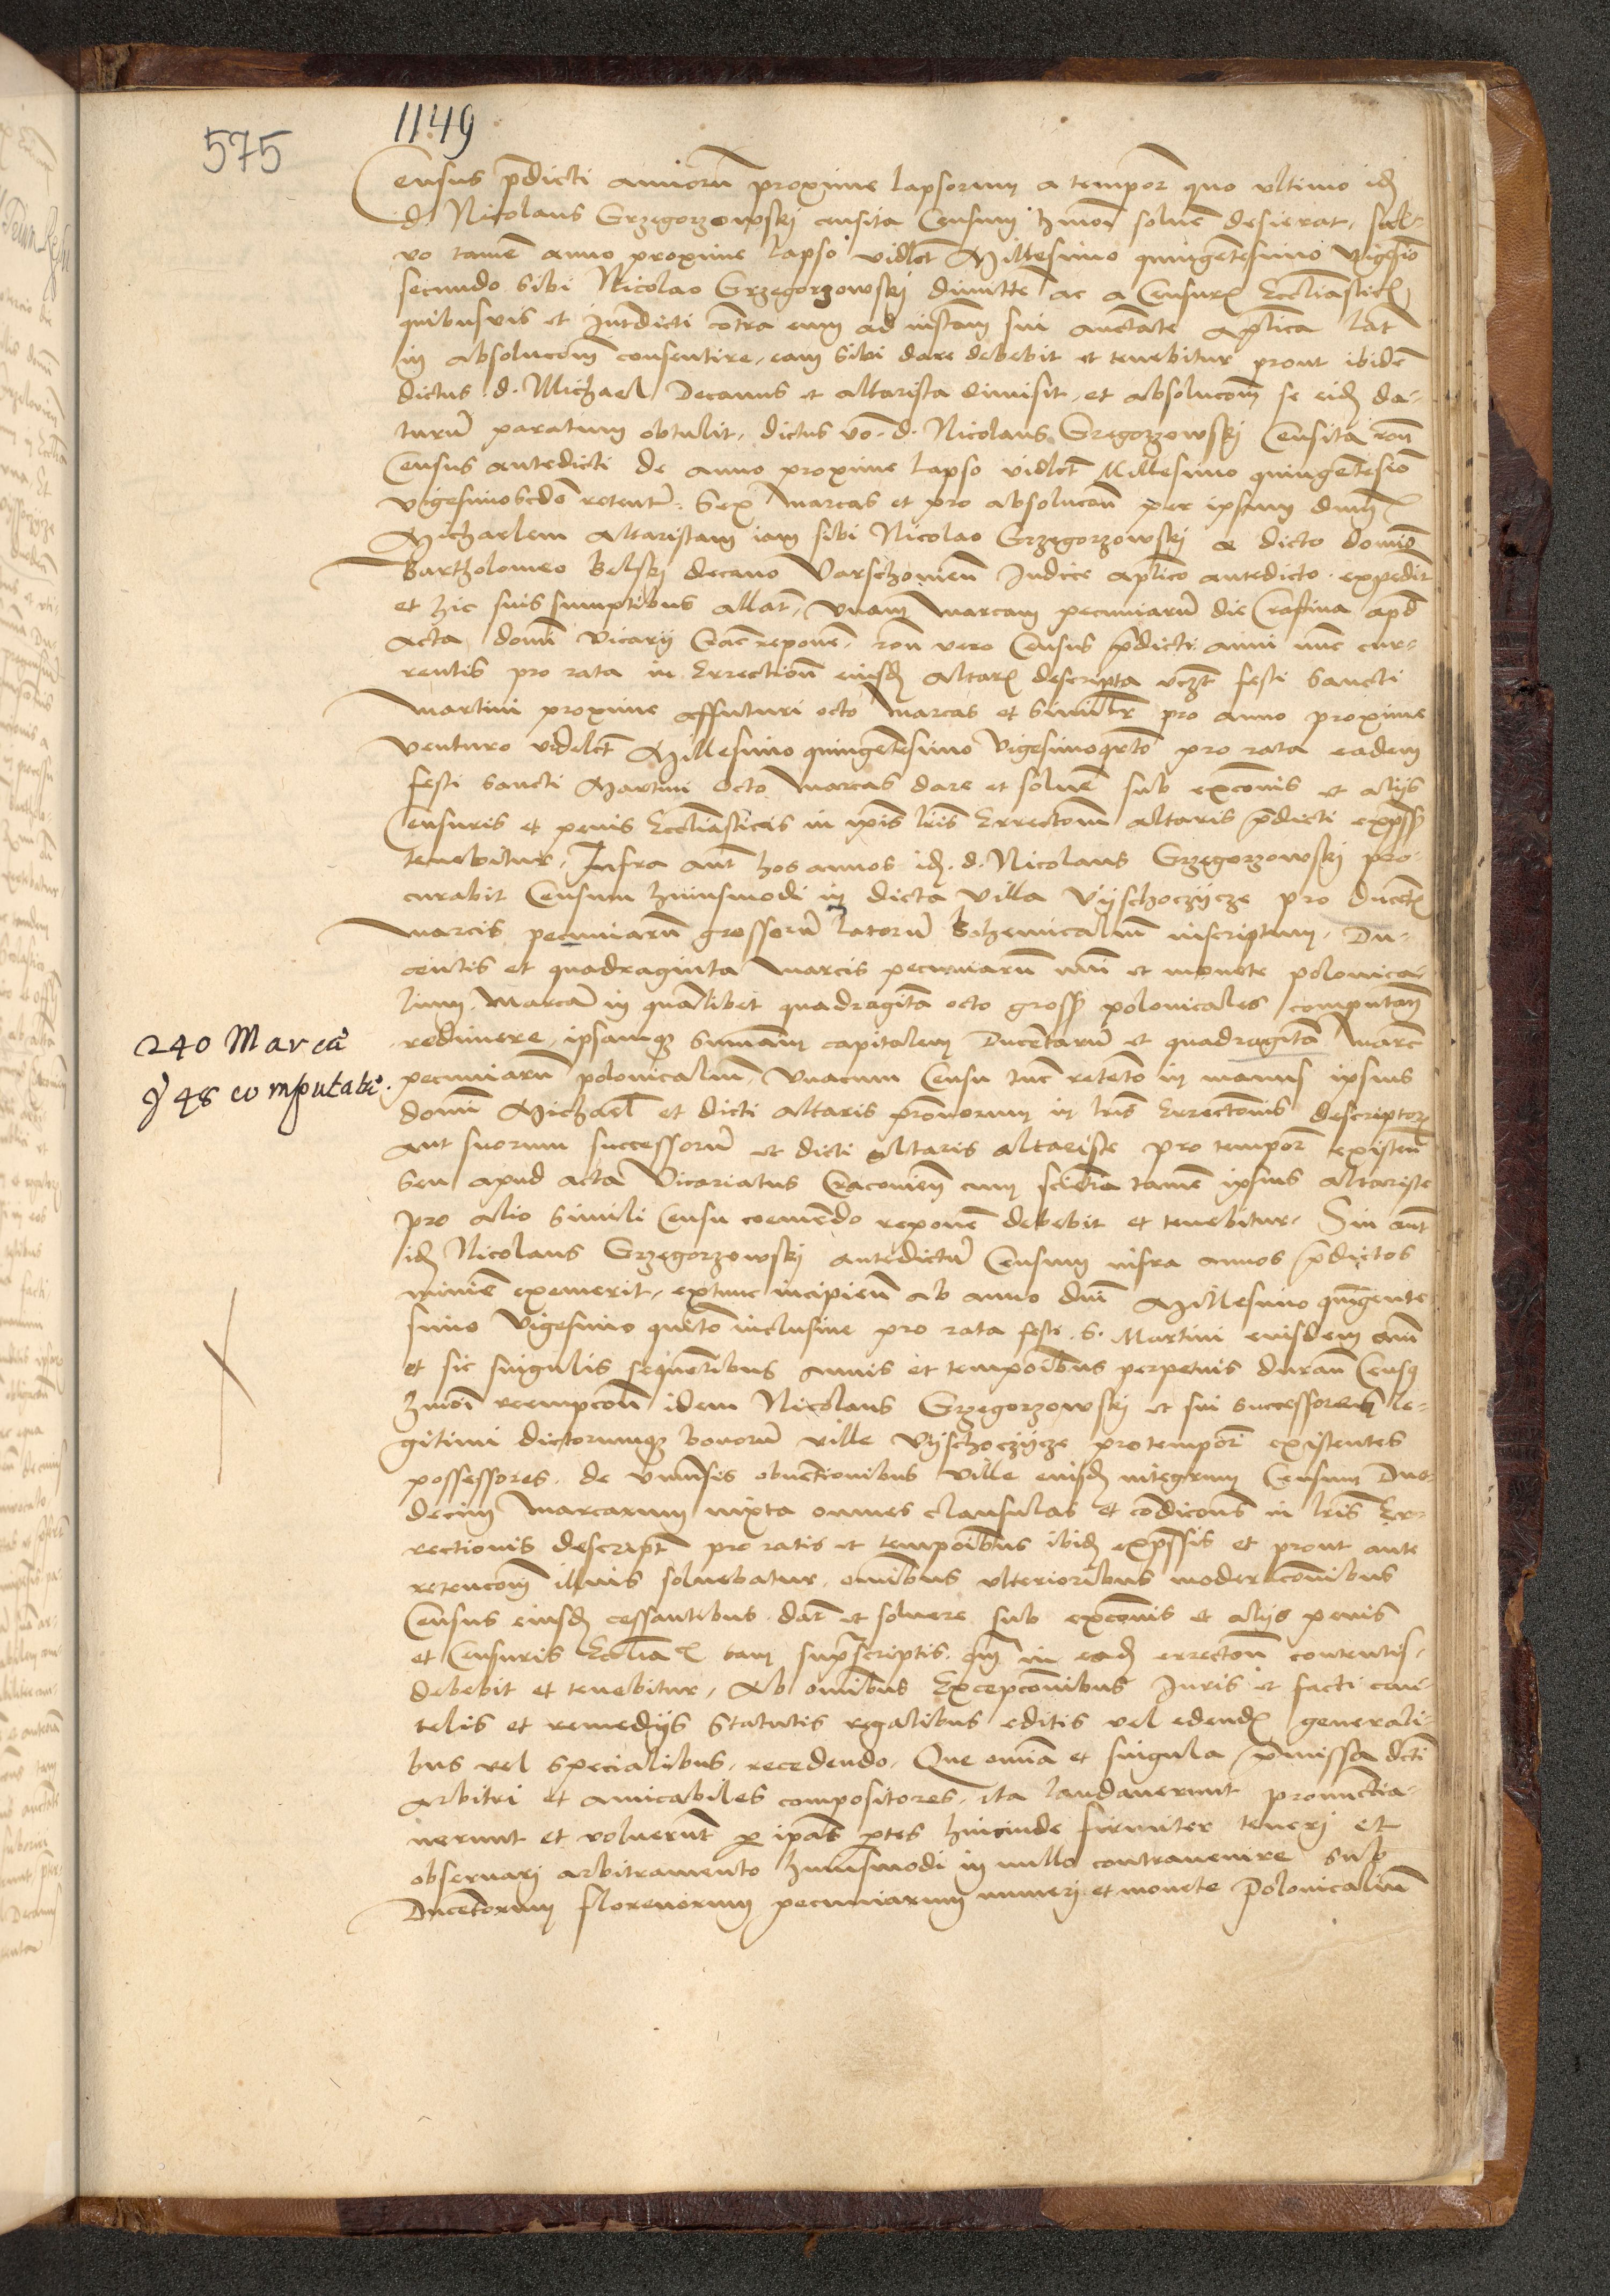 575
1149
Census p̄dicti annorū proxime lapsorum a tempor̄ quo ultimo idē
d. Nicolaus Grzegorzowskj censita Censum hm̄oi solue͞ desierat, sal-
vo tamē anno proxime lapso vidl͞t Millesimo quingētesimo vigesīo
secundo sibi Nicolao Grzegorzowskj dimitte͞ ac a Censur͞ Eccl͞iastic͞
quibusvis et Int͞dicti cōtra eum ad instan͞ sui auctate aplica lat͞
in absoluco͞m consentire, eam sibi dare debebit et tenebitur prout ibidē
dictus d. Michael Decanus et altarista dimisit, et absoluco͞m se eidē da-
turū paratum obtulit, dictus v͞o d. Nicolaus Gregorzowskj Censita ro͞ne
Census antedicti de anno proxime lapso vidl͞t Millesimo quingētesīo
vigesimoscdō retent͞: Sex marcas et pro absoluco͞n per ipsum dn͞m
Michaelem altaristam iam sibi Nicolao Grzegorzowskj a dicto domīo
Bartholomeo Belskj decano Varschovien͞ Iudice ap͞lico antedicto expedit͞
et hic suis sumptibus allat͞, unam marcam pecuniarū die Crastina apd͞
acta domī vicarij Crac͞ repone͞, ro͞ne vero Census p̄dicti anni nūc cur-
rentis pro rata in Errection͞ eiusdē altar͞ descripta vcz͞t festi Sancti
Martini proxime affuturi octo marcas et similit͞r pro anno proxime
venturo videlc͞t Millesimo quingētesimo vigesimoqrtō pro rata eadem
festi Sancti Martini octo marcas dare et solue͞ sub exco͞nis et alijs
Censuris et penis Eccl͞iasticis in ip͞is l͞ris Errectio͞n altaris p̄dicti exp͞ss͞
tenebitur, Infra aut͞ hos annos idē d. Nicolaus Grzegorzowskj pro-
curabit Censum huiusmodi in dicta villa Vyschoczÿcze pro ducet͞
marcis pecuniarū grossorū latorū Bohemicaliū inscriptum, Du-
centis et quadraginta marcis pecuniarū nu͞i et monete polonica-
lium marcā in quālibet quadragītā octo gross͞ polonicales computan͞
redimere, ipsamq͞ sum͞am capitalem Ducētarū et quadragītā marc͞
pecuniarū polonicaliū, unacum Censu tūc retēto in manus ipsius
domī Michael͞ et dicti altaris p͞ronorum in l͞ris Errectio͞nis descriptor͞
aut suorum successorū et dicti altaris altariste pro tempor̄ existen͞
seu apud acta Vicariatus Cracovien͞ cum sciētia tamē ipsius altariste
pro alio simili Censu coemēdo repone͞ debebit et tenebitur, Sin aut͞
idē Nicolaus Grzegorzowskj antedictū Censum infra annos p̄dictos
minime͞ exemerit, extunc incipien͞ ab anno dn͞i Millesimo quīgente
simo vigesimo quītō inclusiue pro rata festi S. Martini eiusdem an͞i
et sic singulis sequētibus annis et tempo͞ibus perpetuis duran͞ Censꝰ
hm̄oi reempco͞n idem Nicolaus Grzegorzowskj et sui successores le-
gitimi dictorumq͞ bonorū ville Vyschoczÿcze protempor̄ existentes
possessores, de univ͞sis obuētionibus ville eiusdē integrum Censum Duo-
decim marcarum iuxta omnes clausulas et cōdico͞es in l͞ris Er-
rectionis descript͞ pro ratis et tempo͞ibus ibidē exp͞ssis et prout ante
retenco͞m illius soluebatur, om͞ibus ulterioribus moderaco͞nibus
Census eiusdē cessantibus dar͞ et soluere sub exco͞nis et alijs penis
et Censuris Eccl͞ia͞ tam sup͞ascriptis q͞m in eadē errectio͞n contentis,
debebit et tenebitur, Ab om͞ibus Excepco͞nibus Iuris et facti cau-
telis et remedijs Statutis regalibus editis vel edend͞ generali-
bus vel specialibus, recedendo, Que om͞ia et singula p̄missa dcti
arbitri et amicabiles compositores, ita laudauerunt pronūctia-
uerunt et voluerūt p̱ ip͞as p̱tes hincinde firmiter tenerj et
obseruarj arbitramento huiusmodi in nullo contrauenire sub
Ducētorum florenorum pecuniarum numerj et monete Polonicaliū
240 Marcā
p̱ 48 computatē.